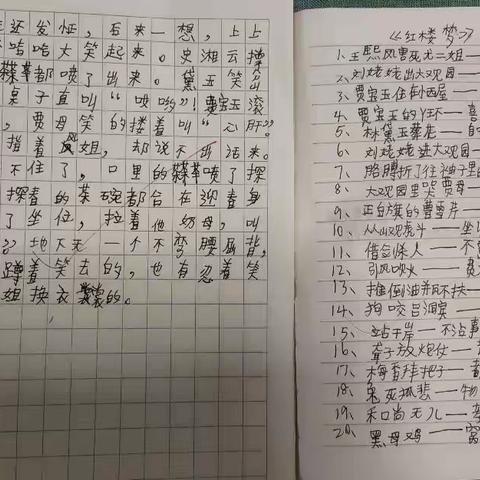 还发怔，后来一想，上上
哈哈大笑起来。史湘云撑
都喷了出来。黛玉笑岔
桌子直叫“哎哟”！贾宝玉滚
，贾母笑的搂着叫“心肝”。
指着凤姐，却说不出话来。
不住了，口里的茶喷了探
探春的茶碗都合在迎春身
了坐位，拉着他奶母，叫
。地下无一个不弯腰屈背，
蹲着笑去的，也有忍着笑
姐换衣裳的。
《红楼梦》
1、王熙凤害死尤二姐——
2、刘姥姥出大观园——
3、贾宝玉住在小西屋——
4、贾宝玉的丫环——
5、林黛玉葬花——自
6、刘姥姥进大观园—
7、胳膊折了往袖子里
8、大观园里哭贾母—
9、正白旗的曹雪芹—
10、从山观虎斗——坐
11、借剑杀人——不
12、引风吹火——费
13、推倒油瓶不扶—
14、狗咬吕洞宾—
15、站干岸——不沾事
16、聋子放炮仗—
17、梅香拜把子——
18、兔死狐悲——物
19、和尚无儿——
20、黑母鸡——窝